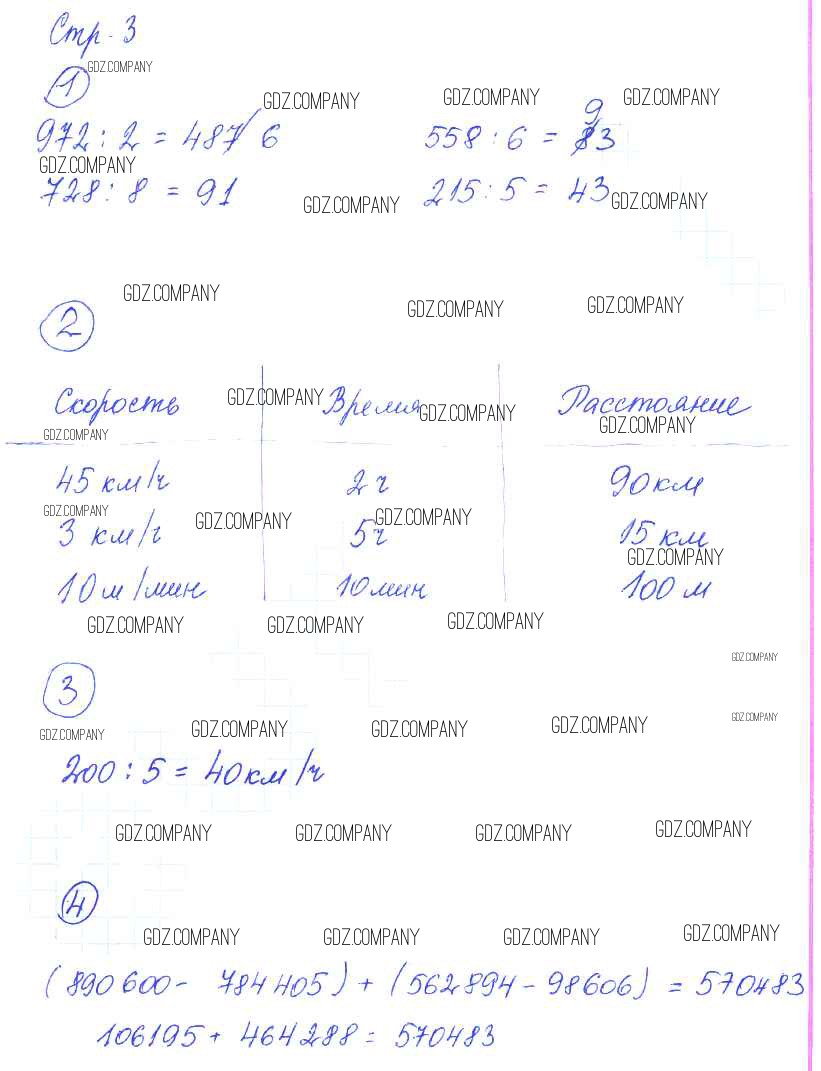 Стр. 3
GDZ.COMPANY
1
GDZ.COMPANY GDZ.COMPANY GDZ.COMPANY
972 : 2 = 487 6 558 : 6 = 93
GDZ.COMPANY
728 : 8 = 91 215 : 5 = 43
GDZ.COMPANY GDZ.COMPANY
GDZ.COMPANY GDZ.COMPANY GDZ.COMPANY
2
Скорость GDZ.COMPANY Время GDZ.COMPANY Расстояние
GDZ.COMPANY GDZ.COMPANY
45 км/ч 2 ч 90 км
GDZ.COMPANY GDZ.COMPANY GDZ.COMPANY
3 км/ч 5 ч 15 км
GDZ.COMPANY
10 м/мин 10 мин 100 м
GDZ.COMPANY GDZ.COMPANY GDZ.COMPANY
GDZ.COMPANY
3
GDZ.COMPANY GDZ.COMPANY GDZ.COMPANY GDZ.COMPANY GDZ.COMPANY
200 : 5 = 40 км/ч
GDZ.COMPANY GDZ.COMPANY GDZ.COMPANY GDZ.COMPANY
4
GDZ.COMPANY GDZ.COMPANY GDZ.COMPANY GDZ.COMPANY
(890600 - 784405) + (562894 - 98606) = 570483
106195 + 464288 = 570483